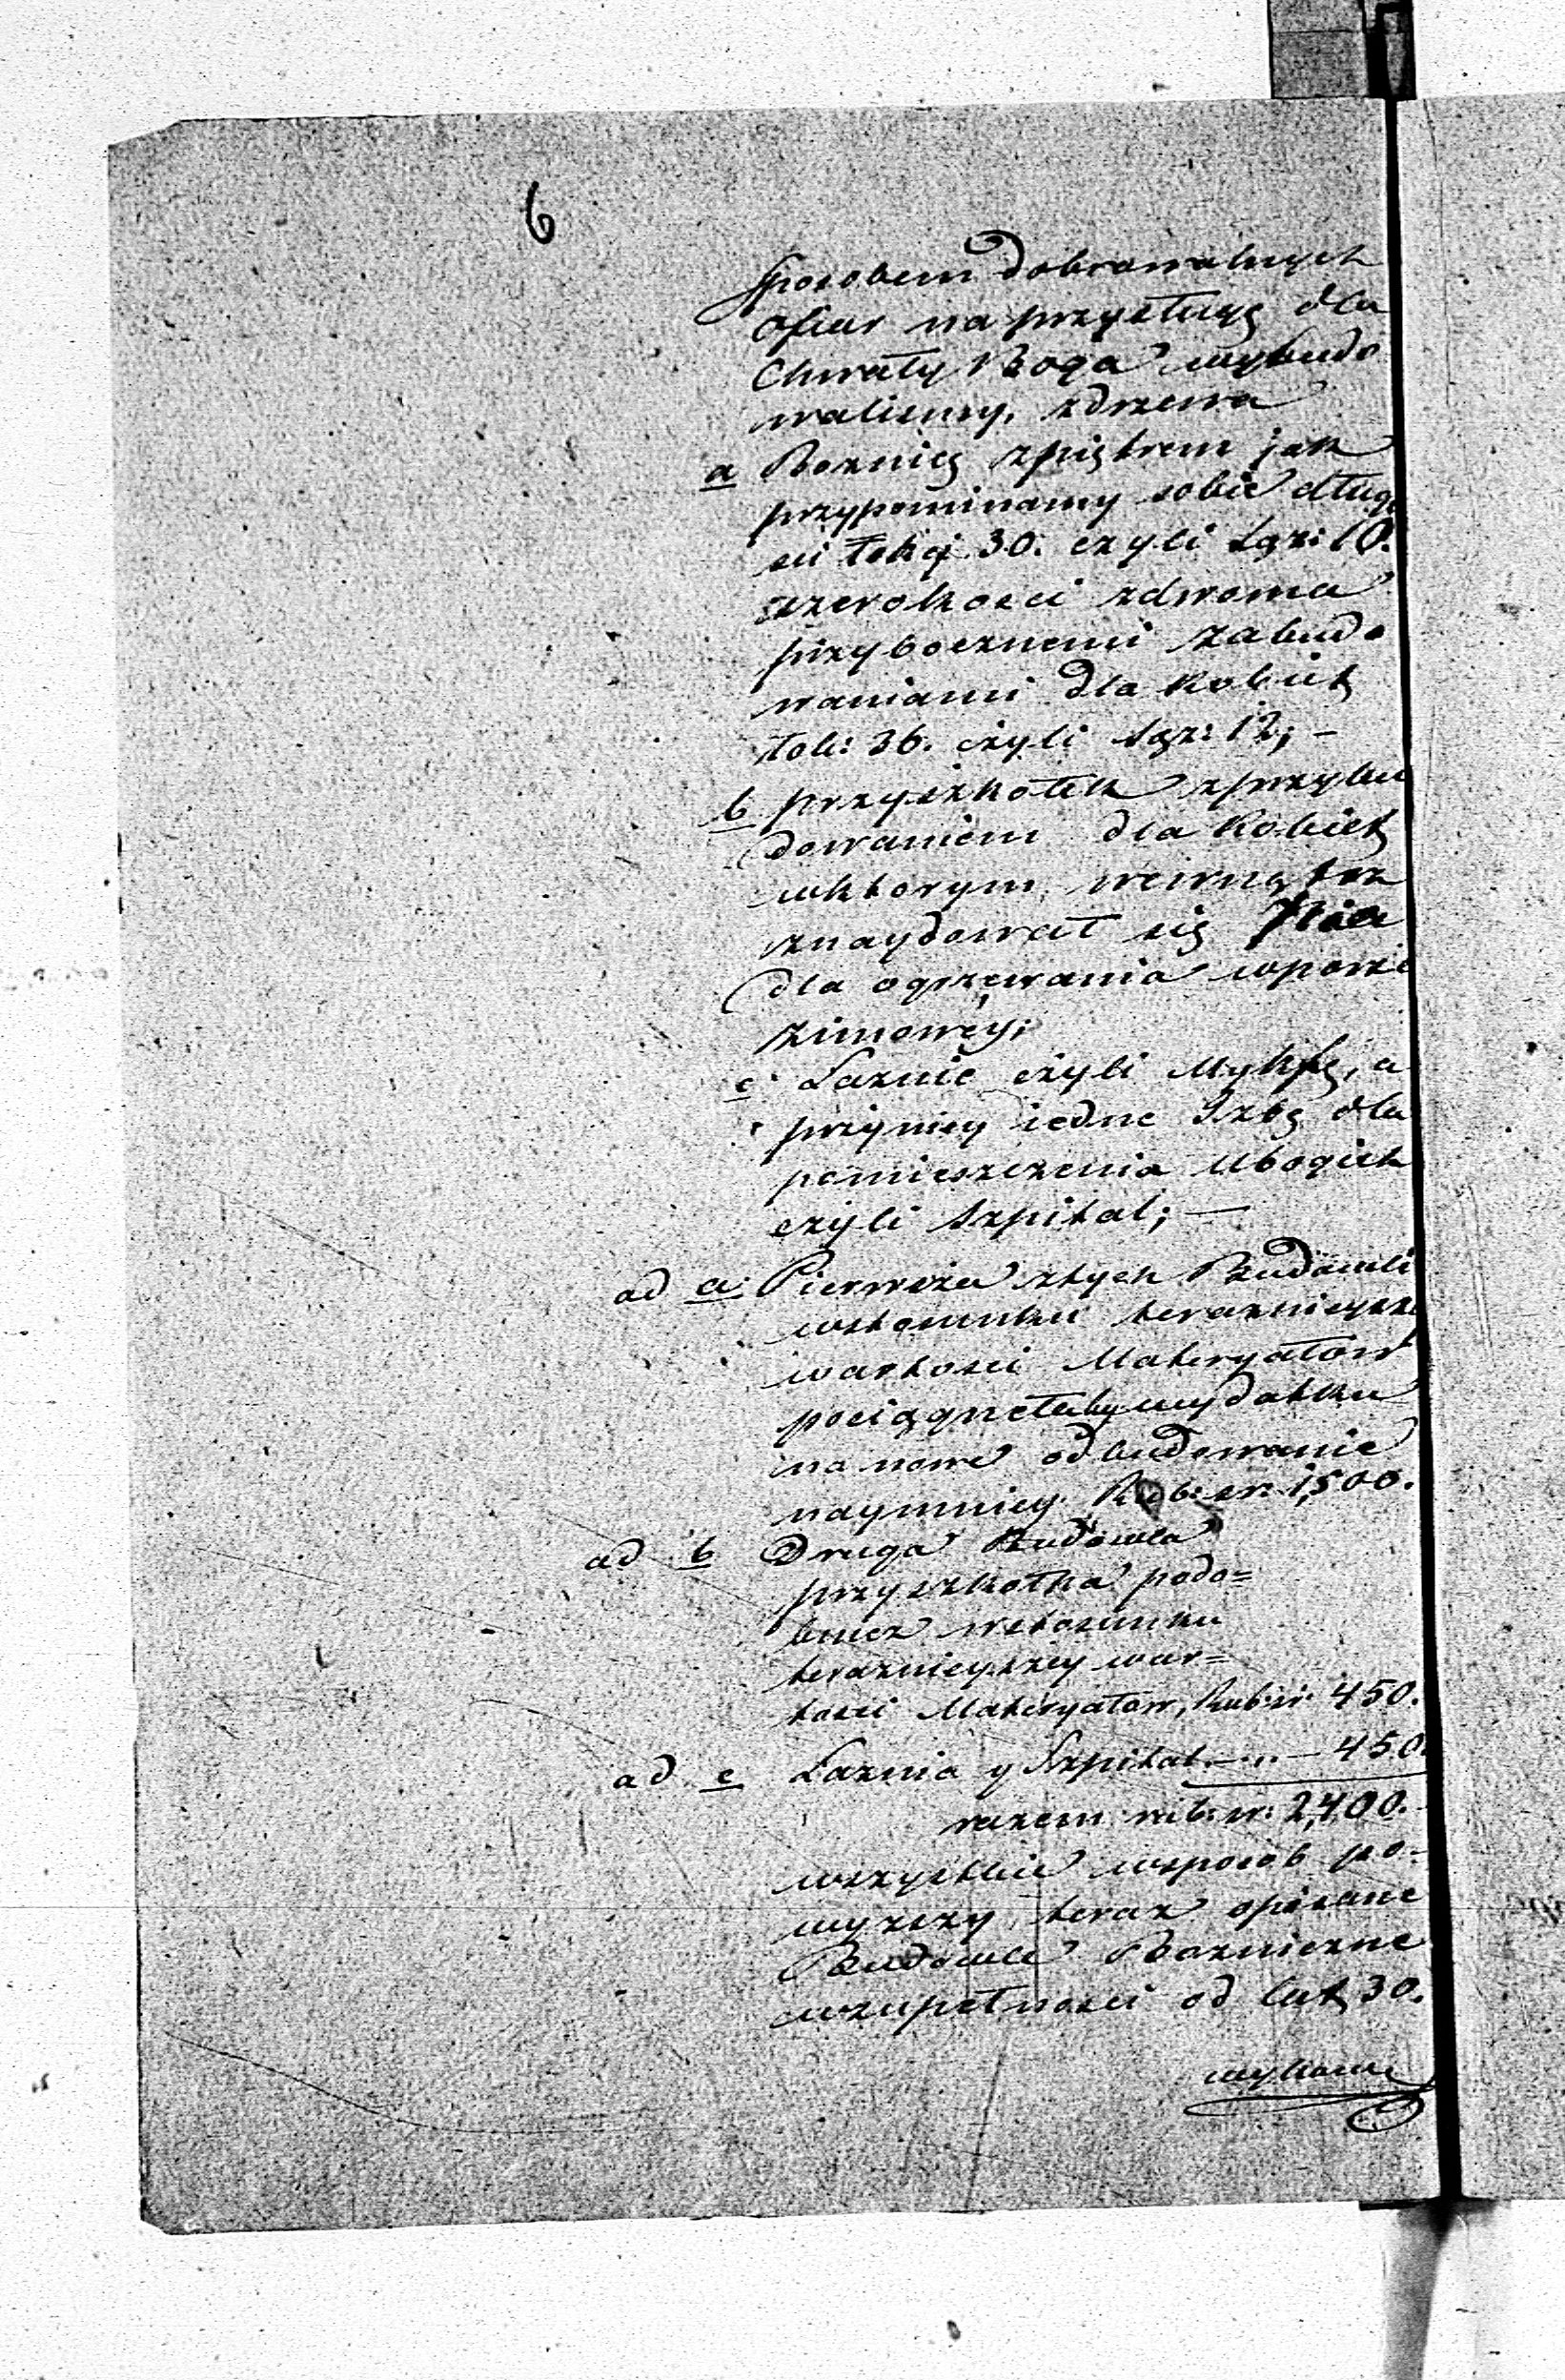 6
Sposobem dobrowolnych
Ofiar na przysługę dla
Chwały Boga wybudo
waliśmy, zdrzewa
a Boznicę zpiętrem jak
przypominamy sobie długo
sci łokci 30. czyli sąż: 10.
szerokosci zdwoma
przybocznemi zabudo
waniami dla Kobiet
łok: 36. czyli sąż: 12; –
b przyszkołek zprzybu
dowaniem dla Kobiet
wktorym wewnątrz
znaydował się Piec
dla ogrzewania wporze
zimowey;
c Łaznie czyli Mykfę, a
przyniey iedne Izbę dla
pomieszczenia Ubogich
czyli Szpital; —
ad a Pierwsza ztych Budowli
wstosunku teraznieysze
wartosci Materyałow
pociągnełaby wydatku
na nowe odbudowanie
naymniey Rub: sr: 1,500.
ad b Druga Budowla
przyszkołka podo=
bniez wstosunku
teraznieyszey war=
tosci Materyałow, Rub: sr: 450.
ad c Łaznia y Szpital — 450.
razem rub: sr: 2,400.
wszystkie wsposób po-
wyzszy teraz opisane
Budowle Bozniczne
wzupełnosci od lat 30.